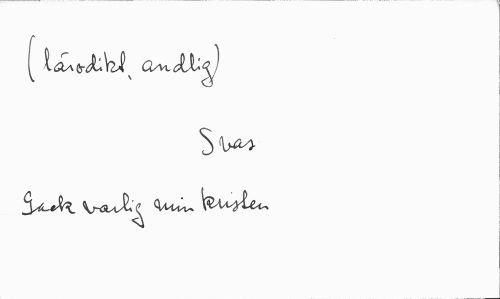 (lärodikt, andlig)
Svas
Gack varlig min kristen